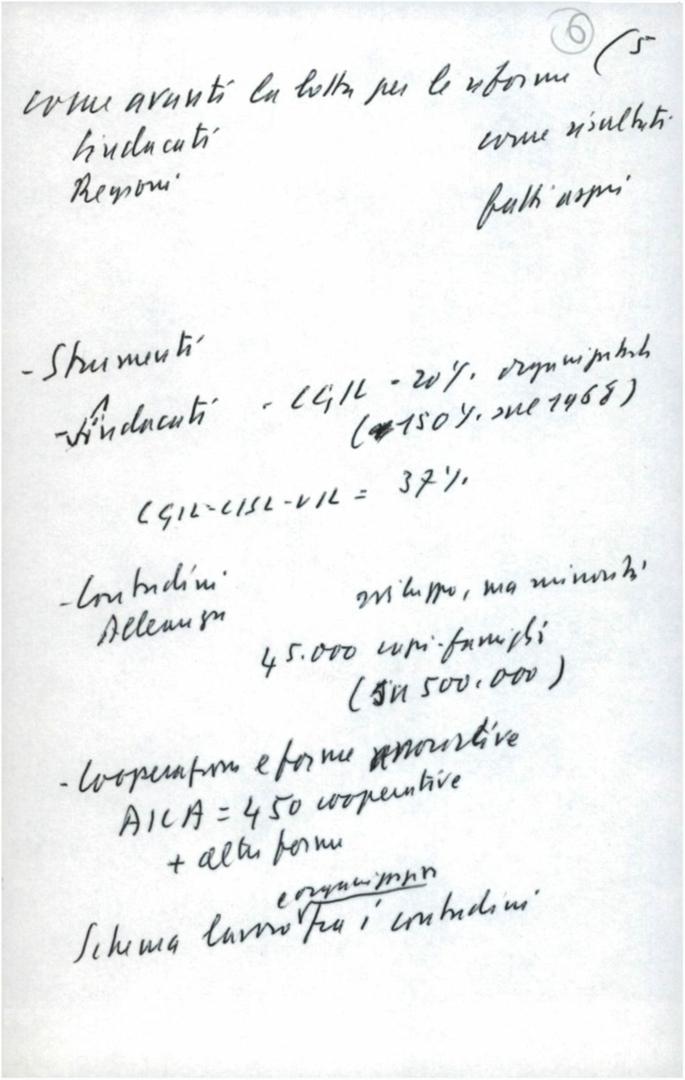 6 (5
come avanti la lotta per le riforme
Sindacati come risultati
Regioni fatti aspri
- Strumenti
- Sindacati - CGIL - 20%. organizzati
(150%. sul 1968)
CGIL-CISL-UIL = 37%.
- Contadini sviluppo, ma minorità
Alleanza
45.000 capi-famiglia
(su 500.000)
- Cooperazione e forme associative
AICA = 450 cooperative
+ altre forme
e organizzazione
Schema lavoro fra i contadini